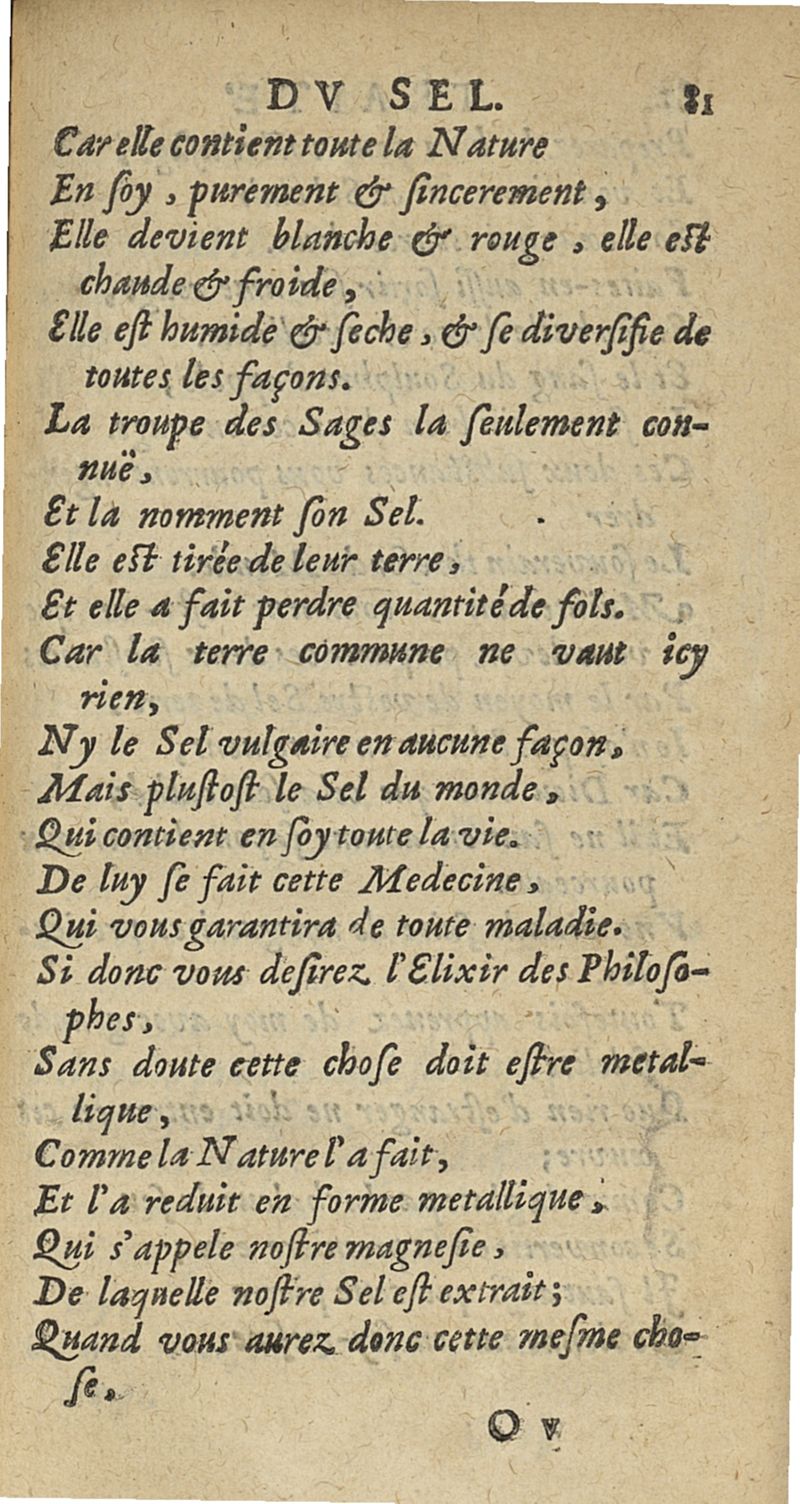 DV SEL. 81
Car elle contient toute la Nature
En ſoy, purement & ſincerement,
Elle devient blanche & rouge, elle eſt
chaude & froide,
Elle eſt humide & ſeche, & ſe diverſifie de
toutes les façons.
La troupe des Sages la ſeulement con-
nuë,
Et la nomment ſon Sel.
Elle eſt tirée de leur terre,
Et elle a fait perdre quantité de fols.
Car la terre commune ne vaut icy
rien,
Ny le Sel vulgaire en aucune façon,
Mais pluſtoſt le Sel du monde,
Qui contient en ſoy toute la vie.
De luy ſe fait cette Medecine,
Qui vous garantira de toute maladie.
Si donc vous deſirez l'Elixir des Philoſo-
phes,
Sans doute cette choſe doit eſtre metal-
lique,
Comme la Nature l'a fait,
Et l'a reduit en forme metallique,
Qui s'appele noſtre magneſie,
De laquelle noſtre Sel eſt extrait;
Quand vous aurez donc cette meſme cho-
ſe,
O v